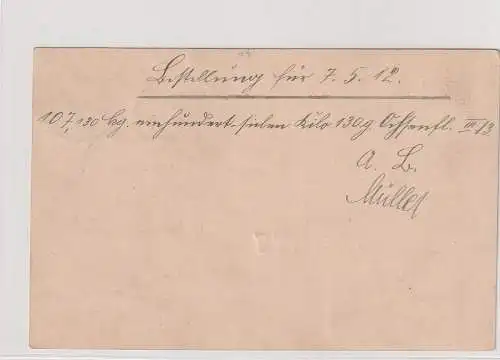 Bestellung für 7. 5. 12.
107,130 kg. einhundert sieben Kilo 130 g. Ochsenfl. III 13
A. B.
Müller